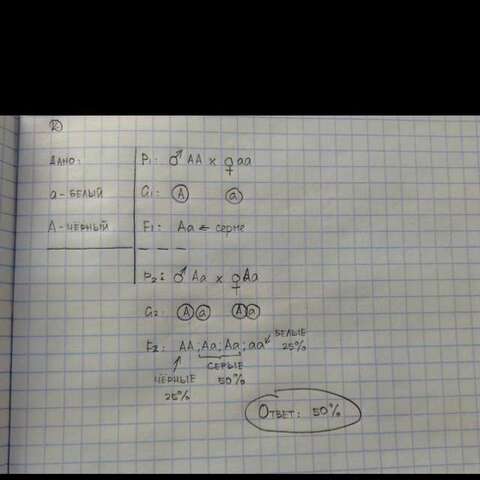 2
Дано:
P₁: ♂ AA x ♀ aa
а - белый
G₁: A a
А - чёрный
F₁: Aa ← серые
P₂: ♂ Aa x ♀ Aa
G₂: A a A a
F₂: AA; Aa; Aa; aa
белые
25%
серые
50%
чёрные
25%
Ответ: 50%